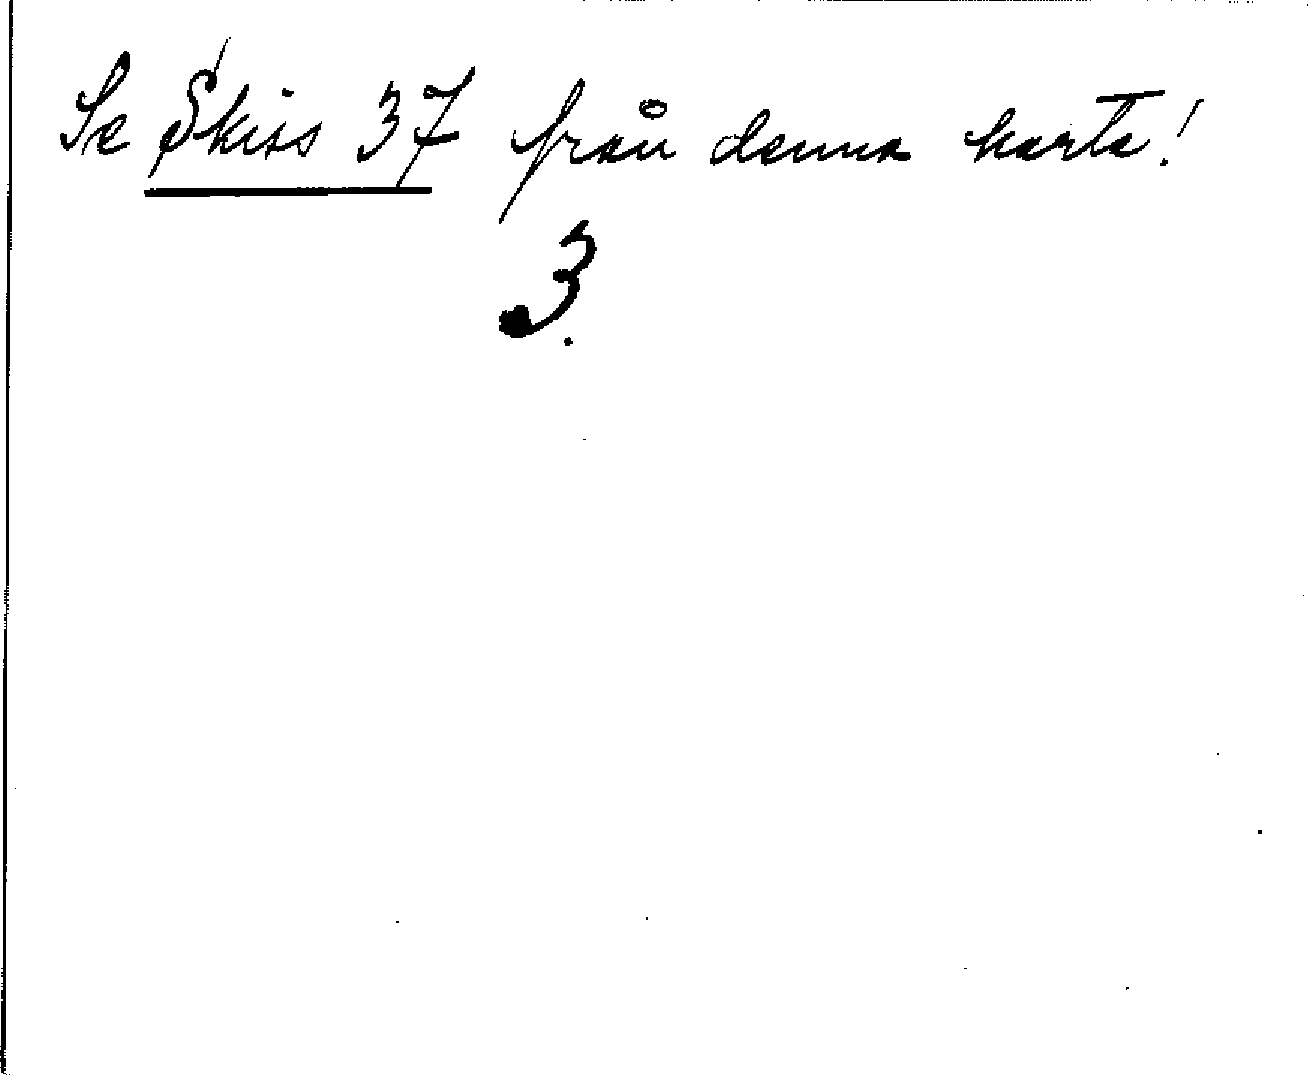 Se Skiss 37 från denna karta!
3.